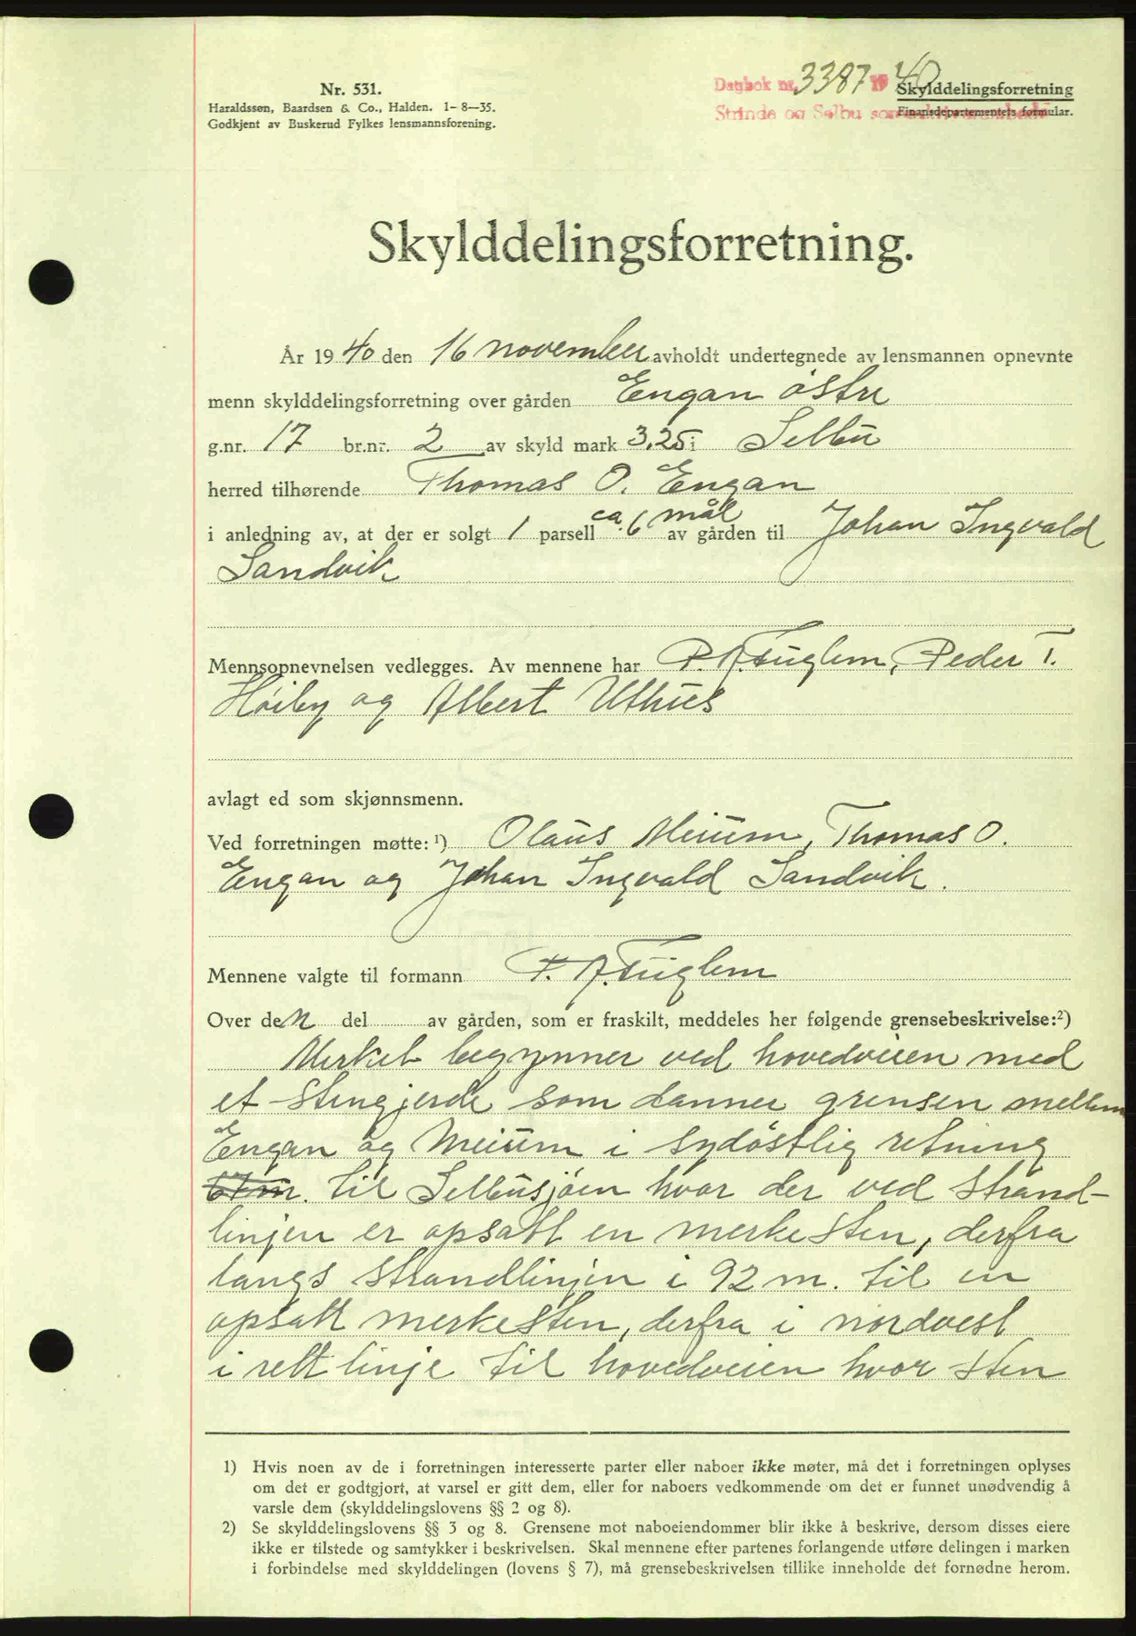 Nr. 531.
Haraldssøn, Baardsen & Co., Halden. 1–8–35.
Godkjent av Buskerud Fylkes lensmannsforening.
Dagbok nr. 3387 19 40
Strinda og Selbu
Skylddelingsforretning
Finansdepartementets formular.
Skylddelingsforretning.
År 1940 den 16 november avholdt undertegnede av lensmannen opnevnte
menn skylddelingsforretning over gården Engan östre
g.nr. 17 br.nr. 2 av skyld mark 3,25 i Selbu
herred tilhørende Thomas O. Engan
i anledning av, at der er solgt 1 parsell ca. 6 mål av gården til Johan Ingvald
Sandvik
Mennsopnevnelsen vedlegges. Av mennene har P. A. Fuglem, Peder T.
Höiby og Albert Uthus
avlagt ed som skjønnsmenn.
Ved forretningen møtte: ¹) Olaus Meium, Thomas O.
Engan og Johan Ingvald Sandvik.
Mennene valgte til formann P. A. Fuglem
Over den del av gården, som er fraskilt, meddeles her følgende grensebeskrivelse:²)
Merket begynner ved hovedveien med
et stengjerde som danner grensen mellem
Engan og Meium i sydöstlig retning
til Selbusjöen hvor der ved strand-
linjen er opsatt en merkesten, derfra
langs strandlinjen i 92 m. til en
opsatt merkesten, derfra i nordvest
i rett linje til hovedveien hvor sten
1) Hvis noen av de i forretningen interesserte parter eller naboer ikke møter, må det i forretningen oplyses
om det er godtgjort, at varsel er gitt dem, eller for naboers vedkommende om det er funnet unødvendig å
varsle dem (skylddelingslovens §§ 2 og 8).
2) Se skylddelingslovens §§ 3 og 8. Grensene mot naboeiendommer blir ikke å beskrive, dersom disses eiere
ikke er tilstede og samtykker i beskrivelsen. Skal mennene efter partenes forlangende utføre delingen i marken
i forbindelse med skylddelingen (lovens § 7), må grensebeskrivelsen tillike inneholde det fornødne herom.